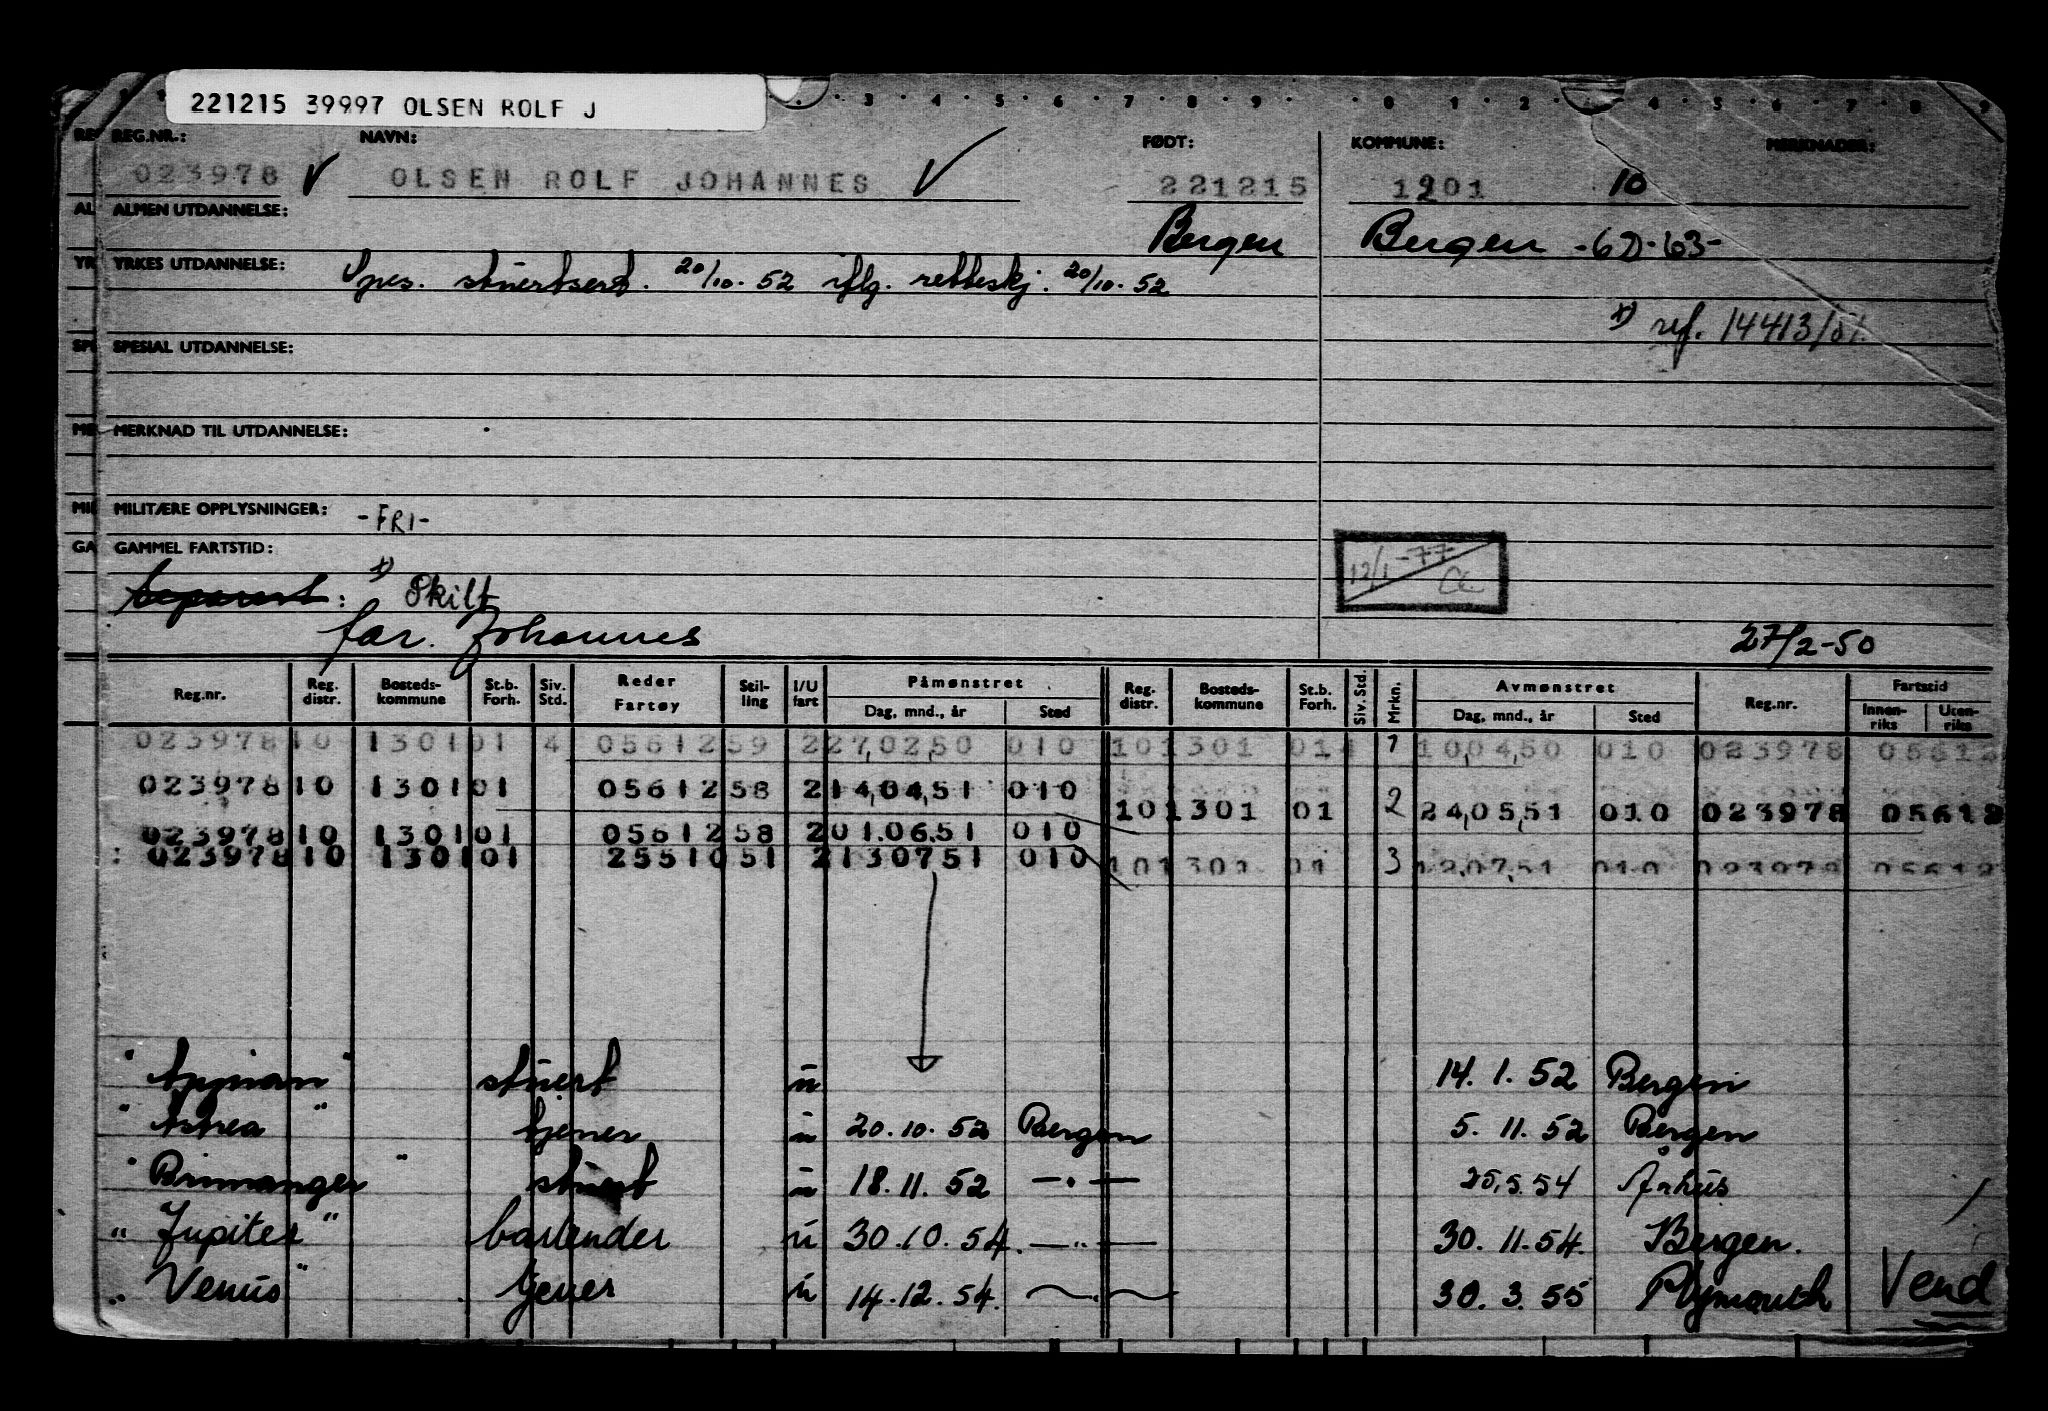 221215 39997 OLSEN ROLF J
REG.NR.: NAVN: FØDT: KOMMUNE: MERKNADER:
023978 OLSEN ROLF JOHANNES 221215 1201 10
ALMEN UTDANNELSE: Bergen Bergen -6D-63-
YRKES UTDANNELSE: Spes. stuertsert. 20/10-52 iflg. retteskj. 20/10-52
x) ref. 14413/51.
SPESIAL UTDANNELSE:
MERKNAD TIL UTDANNELSE:
MILITÆRE OPPLYSNINGER: -FRI-
GAMMEL FARTSTID:
12/1-77
Separert: x) Skilt
far. Johannes
27/2-50
Reg.nr. Reg. distr. Bosteds-kommune St.b. Forh. Siv. Std. Reder Fartøy Stil-ling I/U fart Påmønstret Dag, mnd., år Sted Reg. distr. Bosteds-kommune St.b. Forh. Siv. Std. Mrkn. Avmønstret Dag, mnd., år Sted Reg.nr. Fartstid Innen-riks Uten-riks
023978 10 1301 01 4 05612 59 2 27,02,50 010 10 1301 01 4 1 10,04,50 010 023978 05612
023978 10 1301 01 05612 58 2 14,04,51 010 10 1301 01 2 24,05,51 010 023978 05612
023978 10 1301 01 05612 58 2 01.06.51 010
023978 10 1301 01 25510 51 2 130751 010 10 1301 01 3 12,07,51 010 023978 05612
stuert u 14. 1. 52 Bergen
" Astrea " tjener u 20.10.52 Bergen 5. 11. 52 Bergen
" Brimanger " stuert u 18.11.52 —"— 25.5.54 Århus
" Jupiter " bartender u 30.10.54. —"— 30. 11.54. Bergen.
" Venus " tjener u 14.12.54. 30. 3. 55 Plymouth
Vend